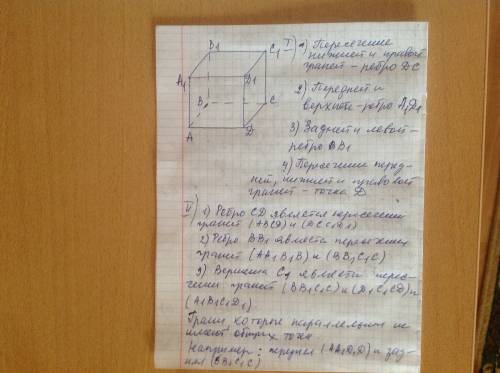 B₁
C₁
A₁
D₁
B
C
A
D
I) 1) Пересечение
нижней и правой
граней – ребро DC
2) Передней и
верхней – ребро A₁D₁
3) Задней и левой –
ребро BB₁
4) Пересечение перед-
ней, нижней и правой
граней – точка D
II) 1) Ребро CD является пересечением
граней (ABCD) и (DCC₁D₁)
2) Ребро BB₁ является пересечением
граней (AA₁B₁B) и (BB₁C₁C)
3) Вершина C₁ является пересе-
чением граней (BB₁C₁C) и (D₁C₁CD) и
(A₁B₁C₁D₁)
Грани которые параллельны не
имеют общих точек
Например: передняя (AA₁D₁D) и зад-
няя (BB₁C₁C)